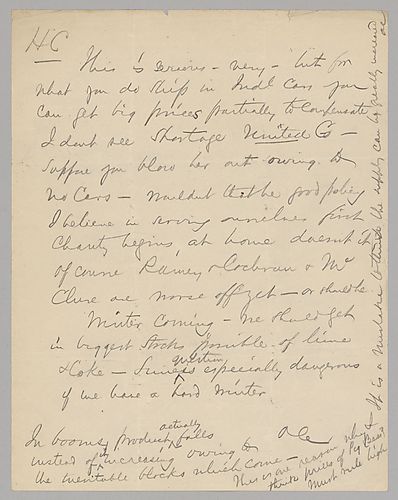 HC
This is serious - very - but for
what you do ship in Indl cars you
can get big prices partially to compensate
I dont see shortage United Co -
Suppose you blow her out owing to
no cars - wouldnt that be good policy
I believe in serving ourselves first
Charity begins at home doesn't it
Of course Rainey & Cochran & Mc
Clure are worse off yet - or should be
Winter coming - we should get
in biggest stocks possible of lime
& Coke - Suiness question especially dangerous
if we have a hard winter
In booms, product actually falls
instead of increasing owing to
the inevitable blocks which come -
This is one reason why I
think prices of Pig & Bess
must rule high
It is a mistake to think the supply can be greatly increased